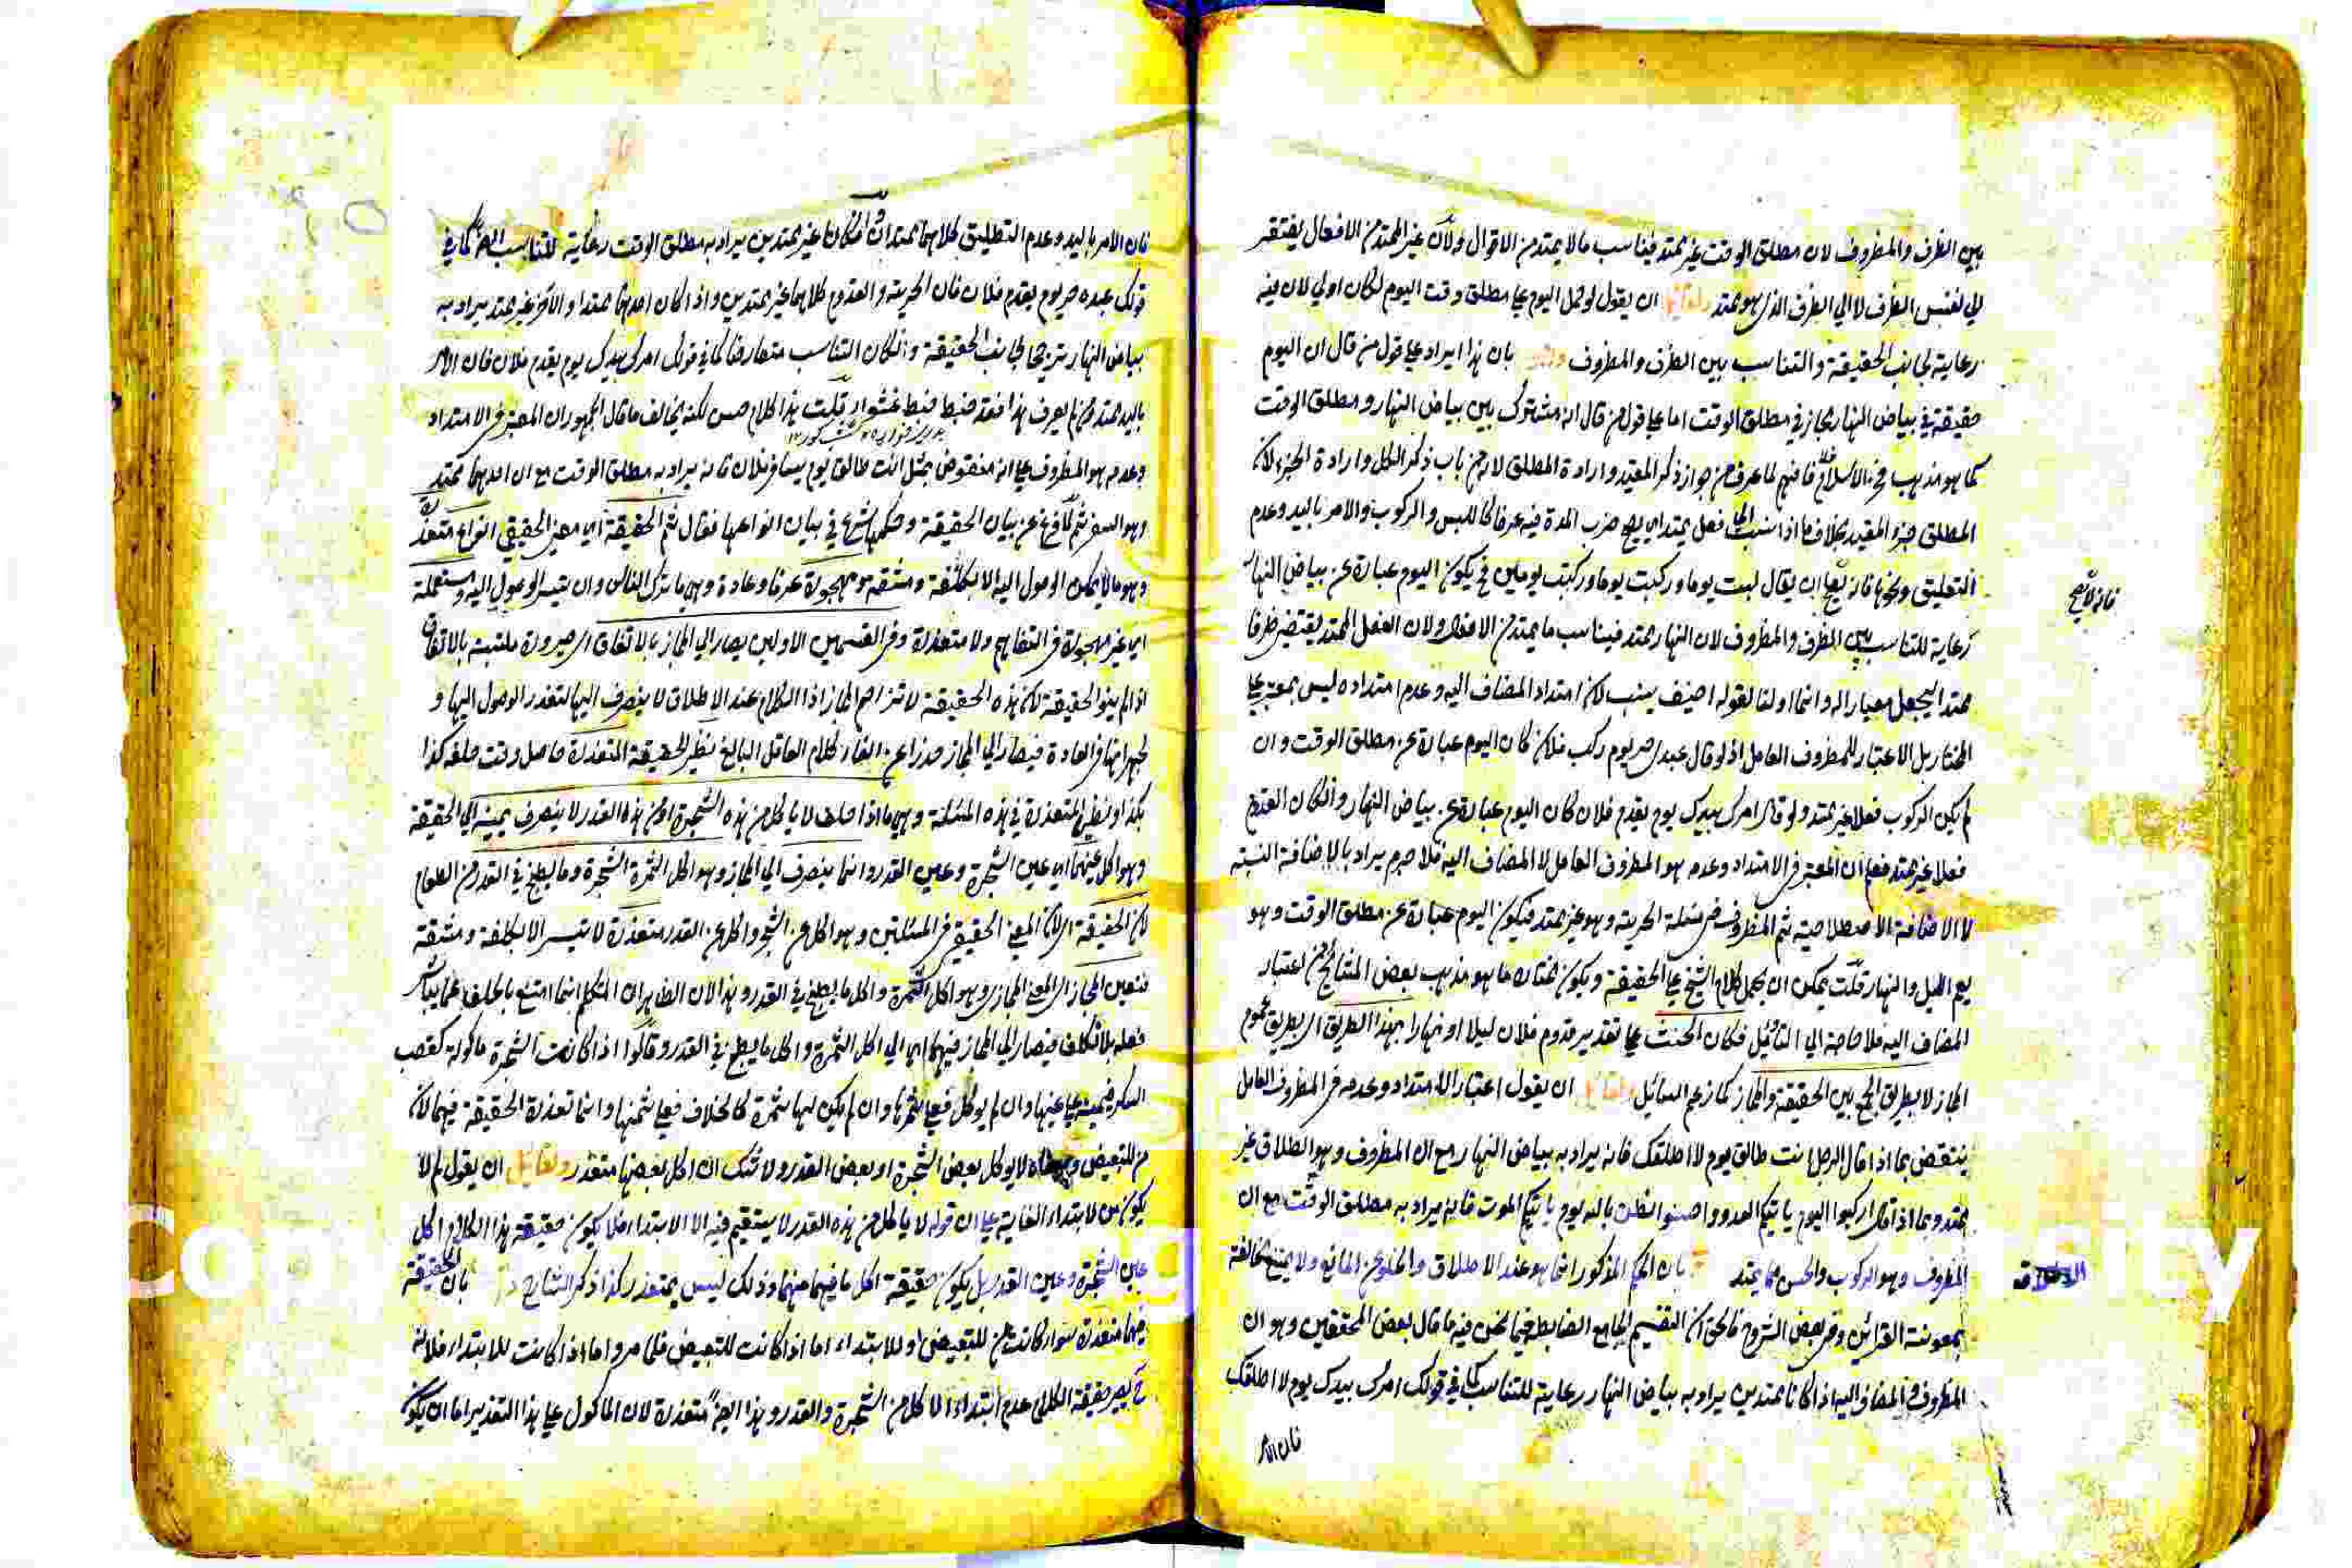 بين الظرف والمظروف لان مطلق الوقت غير ممتد فيناسب ما لا يمتد من الاقوال ولان غير الممتد من الافعال يفتقر
الي نفس الظرف لا الي الظرف الذي هو ممتد ولقائل ان يقول لو حمل اليوم علي مطلق وقت اليوم لكان اولي لان فيه
رعاية لجانب الحقيقة والتناسب بين الظرف والمظروف بان هذا ايراد علي قول من قال ان اليوم
حقيقة في بياض النهار مجاز في مطلق الوقت اما علي قول من قال انه مشترك بين بياض النهار ومطلق الوقت
كما هو مذهب فخر الاسلام فلا فافهم لما عرف من جواز ذكر المقيد وارادة المطلق لا من باب ذكر الكل وارادة الجزء لان
المطلق جزء المقيد بخلاف ما اذا نسب الي فعل يمتد اي يصح ضرب المدة فيه عرفا كاللبس والركوب والامر باليد وعدم
التطليق ونحوها فانه يصح ان يقال لبست يوما وركبت يوما وركبت يومين فح يكون اليوم عبارة عن بياض النهار
رعاية للتناسب بين الظرف والمظروف لان النهار ممتد فيناسب ما يمتد من الافعال ولان الفعل الممتد يقتضي ظرفا
ممتدا ليجعل معيارا له وانما اولنا لقوله اضيف بنسب لان امتداد المضاف اليه وعدم امتداده ليس بمعتبر علي
المختار بل الاعتبار للمظروف العامل اذ لو قال عبدي حر يوم ركب فلان كان اليوم عبارة عن مطلق الوقت وان
لم يكن الركوب فعلا غير ممتد ولو قال امرك بيدك يوم يقدم فلان كان اليوم عبارة عن بياض النهار وان كان القدوم
فعلا غير ممتد فعلم ان المعتبر في الامتداد وعدمه هو المظروف العامل لا المضاف اليه فلا جرم يراد بالاضافة النسبة
لا الاضافة الاصطلاحية ثم المظروف في مسئلة الحرية وهو غير ممتد فيكون اليوم عبارة عن مطلق الوقت وهو
يعم الليل والنهار قلت يمكن ان يحمل كلام الشيخ علي الحقيقة ويكون مختاره ما هو مذهب بعض المشايخ من اعتبار
المضاف اليه فلا حاجة الي التاويل فكان الحنث علي تقدير قدوم فلان ليلا او نهارا بهذا الطريق اي بطريق عموم
المجاز لا بطريق الجمع بين الحقيقة والمجاز كما زعم السائل ولقائل ان يقول اعتبار الامتداد وعدمه في المظروف العامل
ينتقض بما اذا قال الرجل انت طالق يوم لا اطلقك فانه يراد به بياض النهار مع ان المظروف وهو الطلاق غير
ممتد وبما اذا قال اركبوا اليوم ياتيكم العدو واحسنوا الظن بالله يوم ياتيكم الموت فانه يراد به مطلق الوقت مع ان
المظروف وهو الركوب والحسن مما يمتد بان الحكم المذكور انما هو عند الاطلاق والخلو عن المانع ولا يمتنع مخالفة
بمعونة القرائن وفي بعض الشروح فالحق ان التقسيم الجامع الضابط فيما نحن فيه ما قال بعض المحققين وهو ان
المظروف والمضاف اليه اذا كانا ممتدين يراد به بياض النهار رعاية للتناسب كما في قولك امرك بيدك يوم لا اطلقك
فان الامر
فانه لا يصح
فان الامر باليد وعدم التطليق كلاهما ممتدان وان كانا غير ممتدين يراد به مطلق الوقت رعاية للتناسب ايضا كما في
قولك عبده حر يوم يقدم فلان فان الحرية والقدوم كلاهما غير ممتدين واذا كان احدهما ممتدا والاخر غير ممتد يراد به
بياض النهار ترجيحا لجانب الحقيقة وان كان التناسب متعارضا كما في قولك امرك بيدك يوم يقدم فلان فان الامر
باليد ممتد فمن لم يعرف هذا فقد ضبط ضبط عشواء قلت هذا كلام حسن لكنه يخالف ما قال الجمهور ان المعتبر في الامتداد
وعدمه هو المظروف علي انه منقوض بمثل انت طالق يوم يسافر فلان فانه يراد به مطلق الوقت مع ان احدهما ممتد
وهو السفر ثم لما فرغ عن بيان الحقيقة وحكمها شرع في بيان انواعها فقال ثم الحقيقة اي معني الحقيقي انواع متعذرة
وهو ما لا يمكن الوصول اليه الا بكلفة ومشقة ومهجورة عرفا وعادة وهي ما ترك الناس وان تيسر الوصول اليه ومستعملة
اي غير مهجورة في التفاهم ولا متعذرة وفي القسمين الاولين يصار الي المجاز بالاتفاق اي صيرورة ملتبسة بالاتفاق
اذا لم ينو الحقيقة لان هذه الحقيقة لا تزاحم المجاز اذ الكلام عند الاطلاق لا ينصرف اليها لتعذر الوصول اليها و
لهجرانها في العادة فيصار الي المجاز حذرا عن الغاء كلام العاقل البالغ نظير الحقيقة المتعذرة حاصل وقت حلفه كذا
بكذا او نظير المتعذرة في هذه المسئلة وهي ما اذا حلف لا ياكل من هذه الشجرة او من هذه القدر لا ينصرف يمينه الي الحقيقة
وهو اكل عينهما اي عين الشجرة وعين القدر وانما ينصرف الي المجاز وهو اكل الثمرة الشجرة وما يطبخ في القدر من الطعام
لان الحقيقة اي لان المعني الحقيقي في المسئلتين وهو اكل عين الشجر واكل عين القدر متعذرة لا تيسر الا بكلفة ومشقة
فتعين المجاز اي المعني المجازي وهو اكل الثمرة واكل ما يطبخ في القدر وهذا لان الظاهر ان المتكلم انما امتنع بالحلف عما يباشر
فعله بلا تكلف فيصار الي المجاز فيهما اي الي اكل الثمرة واكل ما يطبخ في القدر وقالوا اذا كانت الشجرة ماكولة كقصب
السكر فيمينه علي عينها وان لم يوكل فعلي ثمرها وان لم يكن لها ثمرة كالخلاف فعلي ثمنها وانما تعذرة الحقيقة فيهما لان
من للتبعيض لا يوكل بعض الشجرة او بعض القدر ولا شك ان اكل بعضها متعذر ولقائل ان يقول لم لا
يكون من لابتداء الغاية علي ان قوله لا ياكل من هذه القدر لا يستقيم فيه الا الابتداء فلا يكون حقيقة هذا الكلام اكل
عين الشجرة وعين القدر بل يكون حقيقة اكل ما فيهما منهما وذلك ليس بمتعذر كذا ذكر الشارح بان الحقيقة
فيهما متعذرة سواء كانت من للتبعيض او للابتداء اما اذا كانت للتبعيض فلما مر واما اذا كانت للابتداء فلانه
ح يصير حقيقة الكلام عدم ابتداء الاكل من الشجرة والقدر وهذا ايضا متعذرة لان الماكول علي هذا التقدير اما ان يكون